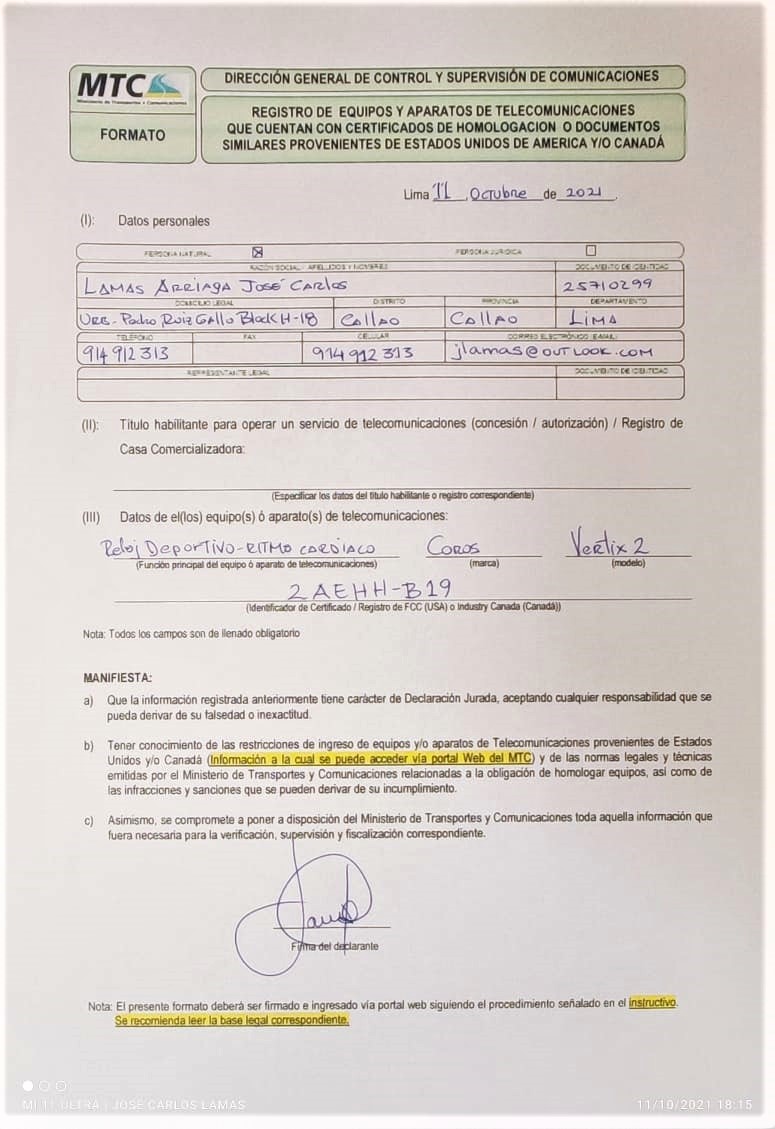 MTC
Ministerio de Transportes y Comunicaciones
FORMATO
DIRECCIÓN GENERAL DE CONTROL Y SUPERVISIÓN DE COMUNICACIONES
REGISTRO DE EQUIPOS Y APARATOS DE TELECOMUNICACIONES
QUE CUENTAN CON CERTIFICADOS DE HOMOLOGACION O DOCUMENTOS
SIMILARES PROVENIENTES DE ESTADOS UNIDOS DE AMERICA Y/O CANADÁ
Lima 11 , Octubre de 2021.
(I): Datos personales
PERSONA NATURAL ☒ PERSONA JURIDICA ☐
RAZÓN SOCIAL / APELLIDOS Y NOMBRES DOCUMENTO DE IDENTIDAD
LAMAS ARRIAGA JOSÉ CARLOS 25710299
DOMICILIO LEGAL DISTRITO PROVINCIA DEPARTAMENTO
URB- Pedro Ruiz Gallo Block H-18 CALLAO CALLAO LIMA
TELÉFONO FAX CELULAR CORREO ELECTRÓNICO (E-MAIL)
914 912 313 914 912 313 jlamas@outlook.com
REPRESENTANTE LEGAL DOCUMENTO DE IDENTIDAD
(II): Título habilitante para operar un servicio de telecomunicaciones (concesión / autorización) / Registro de
Casa Comercializadora:
(Especificar los datos del título habilitante o registro correspondiente)
(III) Datos de el(los) equipo(s) ó aparato(s) de telecomunicaciones:
Reloj DEPORTIVO-RITMO CARDIACO COROS Vertix 2
(Función principal del equipo ó aparato de telecomunicaciones) (marca) (modelo)
2AEHH-B19
(Identificador de Certificado / Registro de FCC (USA) o Industry Canada (Canadá))
Nota: Todos los campos son de llenado obligatorio
MANIFIESTA:
a) Que la información registrada anteriormente tiene carácter de Declaración Jurada, aceptando cualquier responsabilidad que se
pueda derivar de su falsedad o inexactitud.
b) Tener conocimiento de las restricciones de ingreso de equipos y/o aparatos de Telecomunicaciones provenientes de Estados
Unidos y/o Canadá (Información a la cual se puede acceder vía portal Web del MTC) y de las normas legales y técnicas
emitidas por el Ministerio de Transportes y Comunicaciones relacionadas a la obligación de homologar equipos, así como de
las infracciones y sanciones que se pueden derivar de su incumplimiento.
c) Asimismo, se compromete a poner a disposición del Ministerio de Transportes y Comunicaciones toda aquella información que
fuera necesaria para la verificación, supervisión y fiscalización correspondiente.
Firma del declarante
Nota: El presente formato deberá ser firmado e ingresado vía portal web siguiendo el procedimiento señalado en el instructivo.
Se recomienda leer la base legal correspondiente.
MI 11 ULTRA | JOSE CARLOS LAMAS 11/10/2021 18:15